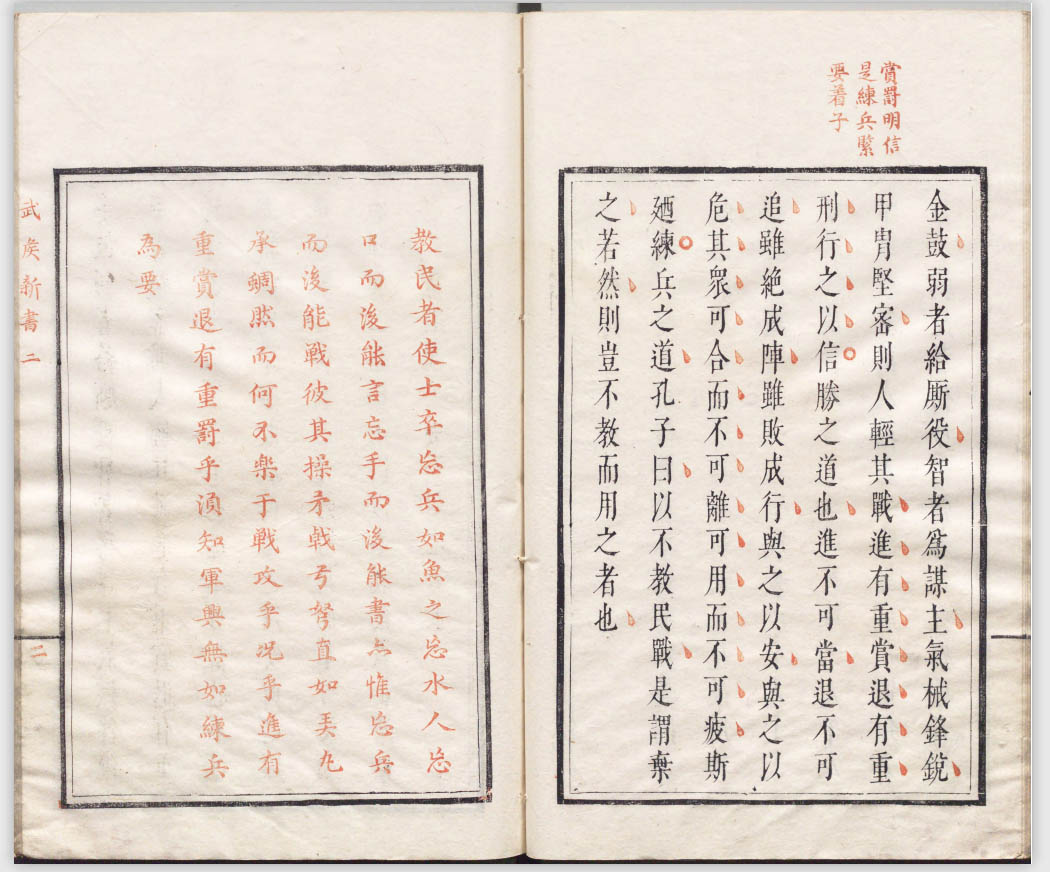 賞罰明信
是練兵緊
要着子
金鼓弱者給厮役智者爲謀主氣械鋒銳
甲冑堅密則人輕其戰進有重賞退有重
刑行之以信勝之道也進不可當退不可
追雖絶成陣雖敗成行與之以安與之以
危其衆可合而不可離可用而不可疲斯
廼練兵之道孔子曰以不教民戰是謂棄
之若然則豈不教而用之者也
教民者使士卒忘兵如魚之忘水人忘
口而後能言忘手而後能書亦惟忘兵
而後能戰彼其操矛戟弓弩直如弄丸
承蜩然而何不樂于戰攻乎况乎進有
重賞退有重罰乎須知軍興無如練兵
為要
武侯新書 二
二